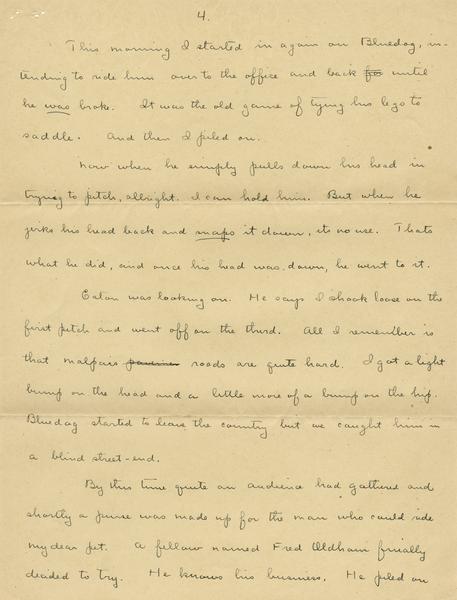 4.
This morning I started in again on Bluedog, in-
tending to ride him over to the office and back for until
he was broke. It was the old game of tying his legs to
saddle. And then I piled on.
Now when he simply pulls down his head in
trying to pitch, allright. I can hold him. But when he
jerks his head back and snaps it down, its no use. Thats
what he did, and once his head was down, he went to it.
Eaton was looking on. He says I shook loose on the
first pitch and went off on the third. All I remember is
that malpais roads are quite hard. I got a light
bump on the head and a little more of a bump on the hip.
Bluedog started to leave the country but we caught him in
a blind street-end.
By this time quite an audience had gathered and
shortly a purse was made up for the man who could ride
my dear pet. A fellow named Fred Oldham finally
decided to try. He knows his business. He piled on